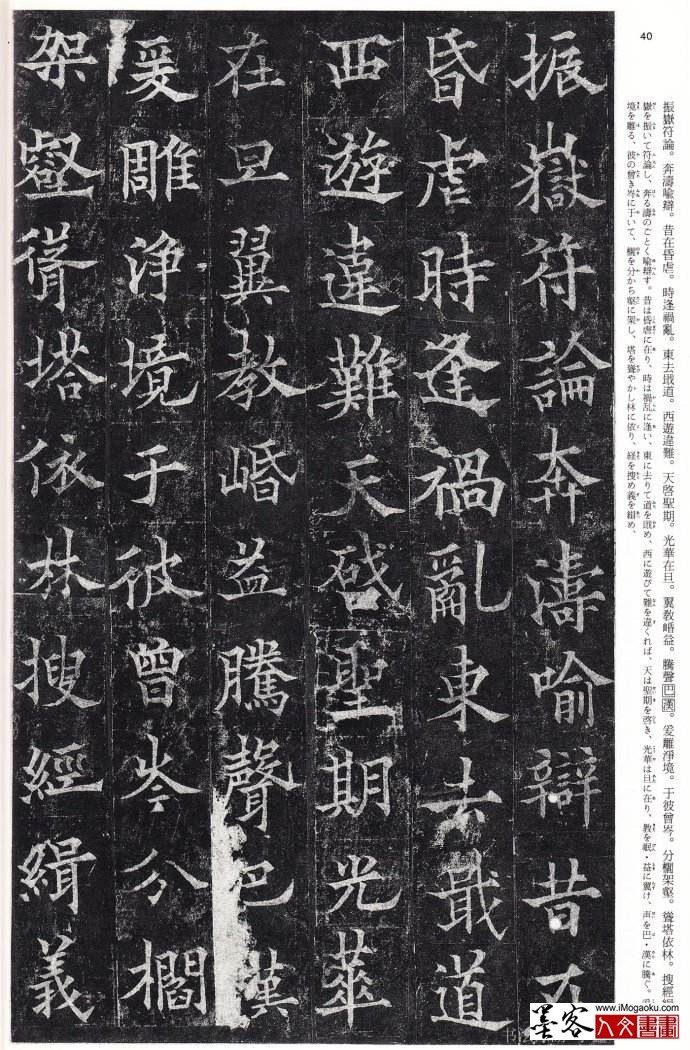 40
振嶽符論。奔濤喩辯。昔在昏虐。時逢禍亂。東去戢道。西遊違難。天啓聖期。光華在旦。翼教崏益。騰聲巴漢。爰雕淨境。于彼曾岑。分櫩架壑。聳塔依林。搜經緝
嶽を振いて符論し、奔る濤のごとく喩辯す。昔は昏虐に在り、時は禍乱に逢い、東に去りて道を戢め、西に遊びて難を違くれば、天は聖期を啓き、光華は旦に在り、教を岷・益に翼け、声を巴・漢に騰ぐ。
境を雕る、彼の曾き岑に于いて、櫩を分かち壑に架し、塔を聳やかし林に依り、経を捜め義を緝め、
振嶽符論奔濤喻辯昔在
昏虐時逢禍亂東去戢道
西遊違難天啓聖期光華
在旦翼教崏益騰聲巴漢
爰雕淨境于彼曾岑分櫩
架壑聳塔依林搜經緝義
墨客 人文書畫
www.iMogaoku.com